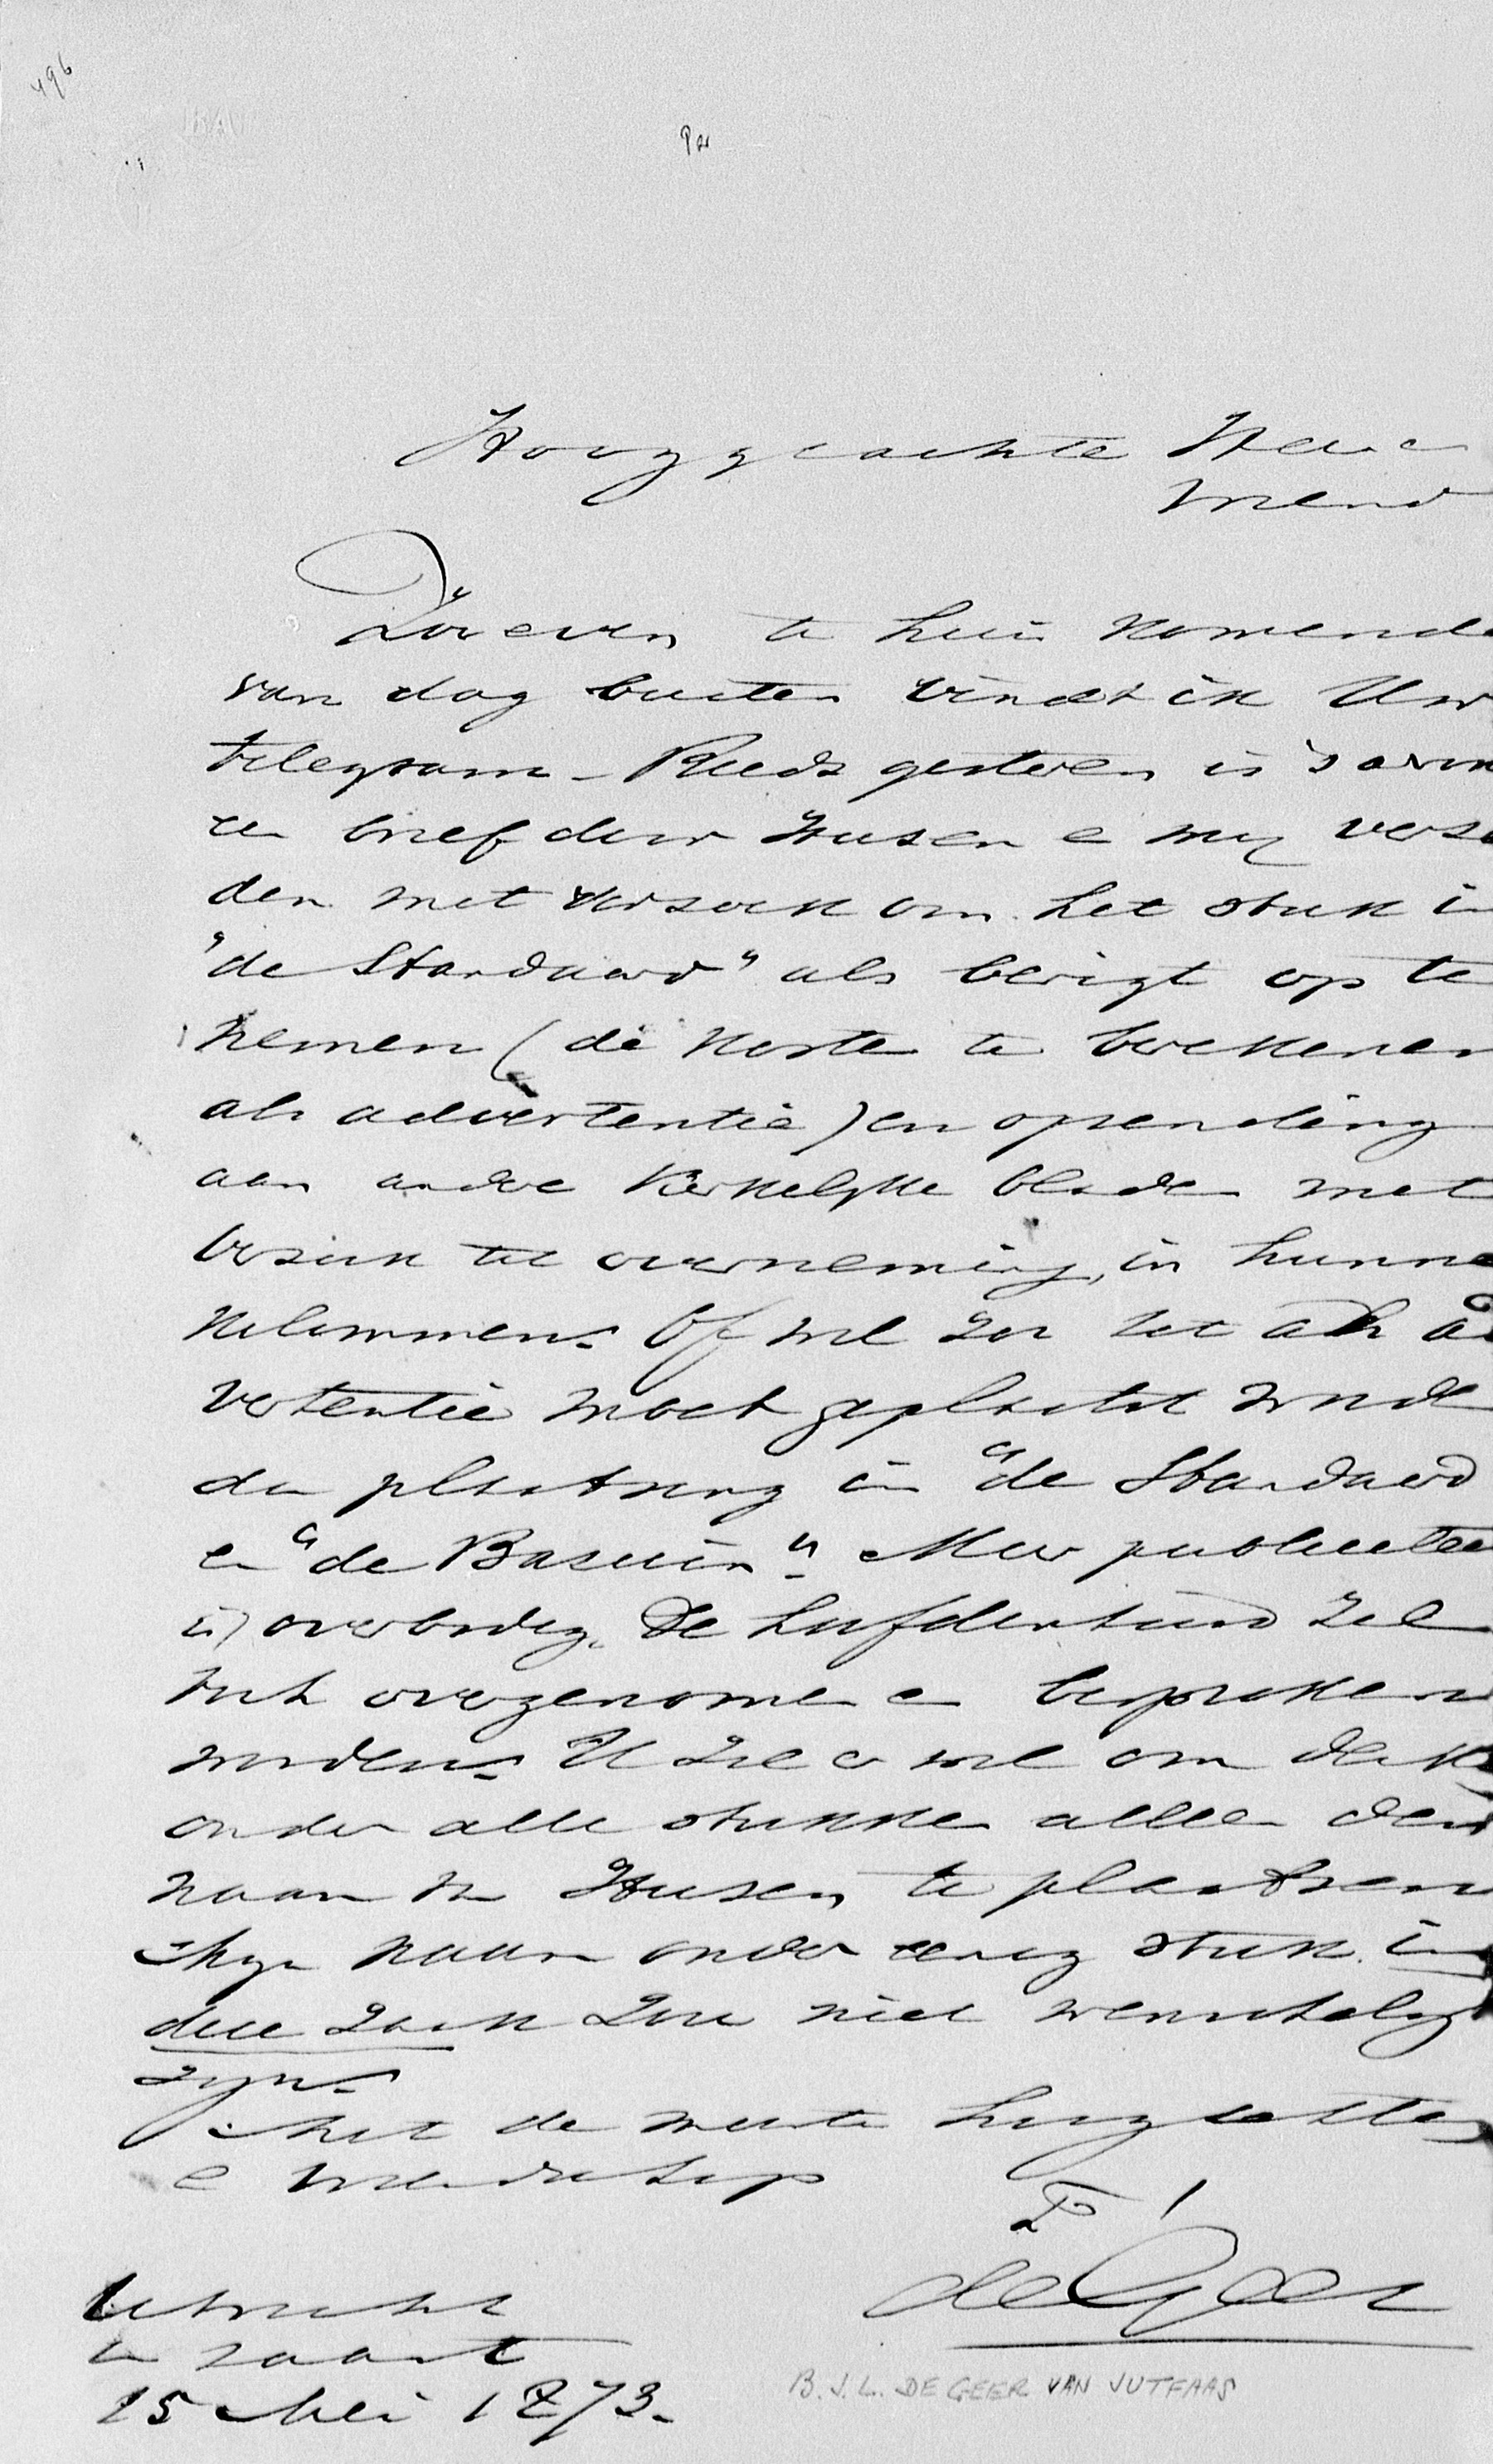 496
Hooggeachte Heer
Vriend
Zoo even te huis komende
van dag buiten vindt ik Uw
telegram - Reeds gisteren is 's avon
een brief door Husen en mij verzo
den met verzoek om het stuk in
"de Standaard" als berigt op te
nemen (de kosten te berekenen
als advertentie) en opzending
aan andre Kerkelijke bladen met
verzoek tot overneming in hunne
kolommen. Of wel zoo het als ad
vertentie moet geplaatst worde
de plaatsing in "de Standaard
en "de Bazuin". Meer publiciteit
is overbodig. De zal
toch overgenomen en besproken
worden. U zie er wel om denk
onder alle stukken alleen den
naam v Husen te plaatsen
Mijn naam onder eenig stuk in
deze zaak zou niet wenschelijk
zijn.
Met de meeste hoogachting
en vriendschap
de Geer
Utrecht
in haast
15 Mei 1873.
B.J.L. DE GEER VAN JUTFAAS